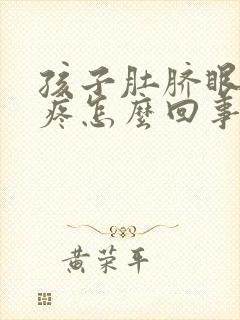 孩子肚脐眼
疼怎麼回事
黄荣平